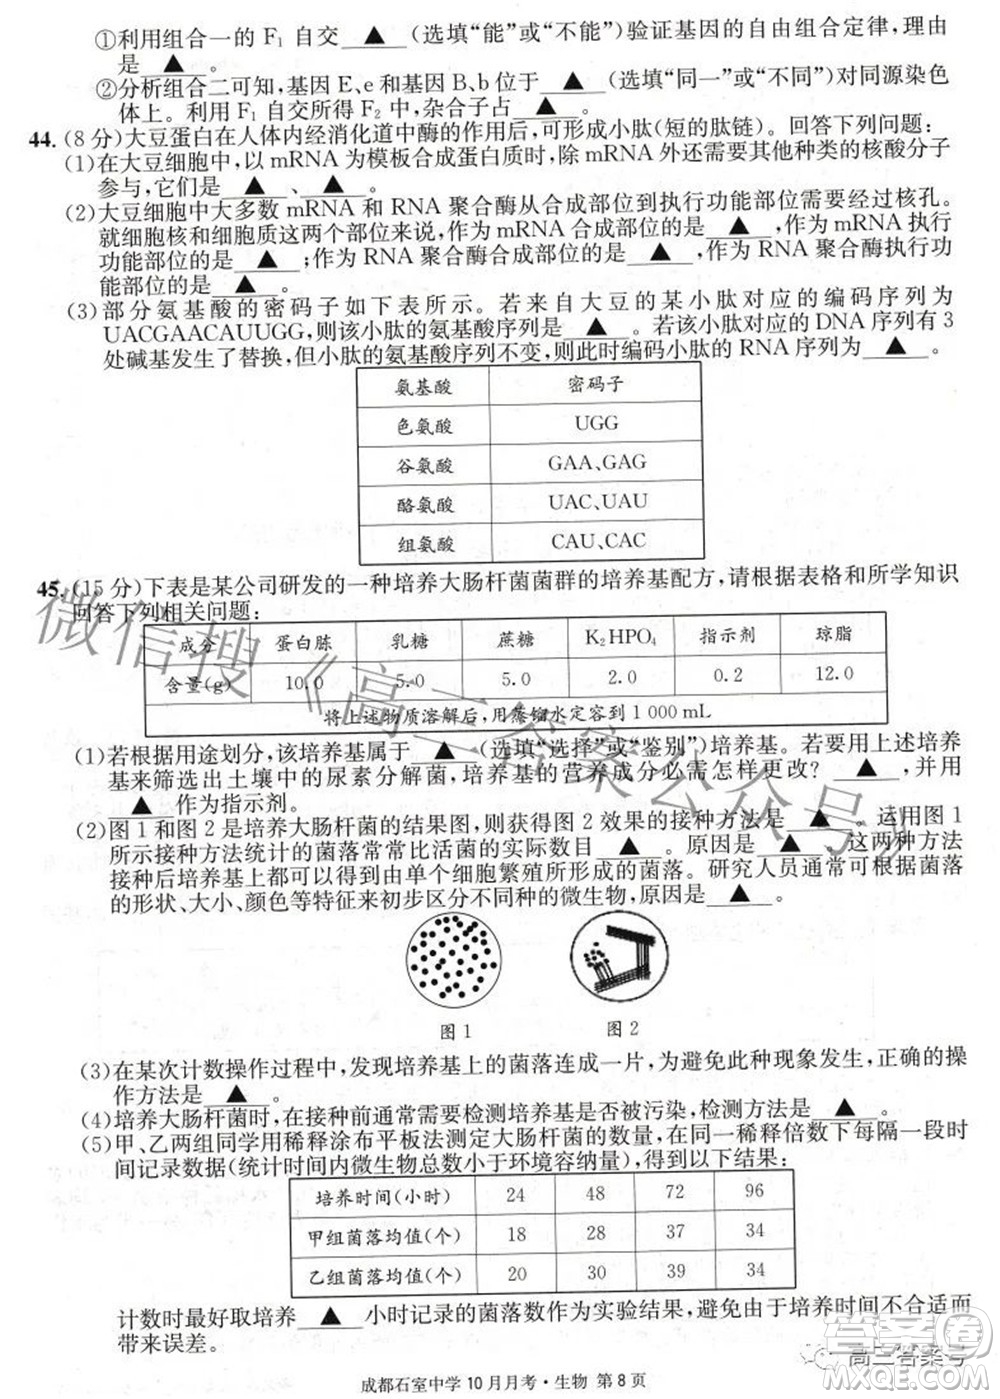 ①利用组合一的 F₁ 自交 ▲ (选填“能”或“不能”)验证基因的自由组合定律,理由
是 ▲ 。
②分析组合二可知,基因 E、e 和基因 B、b 位于 ▲ (选填“同一”或“不同”)对同源染色
体上。利用 F₁ 自交所得 F₂ 中,杂合子占 ▲ 。
44.(8 分)大豆蛋白在人体内经消化道中酶的作用后,可形成小肽(短的肽链)。回答下列问题:
(1)在大豆细胞中,以 mRNA 为模板合成蛋白质时,除 mRNA 外还需要其他种类的核酸分子
参与,它们是 ▲ 、 ▲ 。
(2)大豆细胞中大多数 mRNA 和 RNA 聚合酶从合成部位到执行功能部位需要经过核孔。
就细胞核和细胞质这两个部位来说,作为 mRNA 合成部位的是 ▲ ,作为 mRNA 执行
功能部位的是 ▲ ;作为 RNA 聚合酶合成部位的是 ▲ ,作为 RNA 聚合酶执行功
能部位的是 ▲ 。
(3)部分氨基酸的密码子如下表所示。若来自大豆的某小肽对应的编码序列为
UACGAACAUUGG,则该小肽的氨基酸序列是 ▲ 。若该小肽对应的 DNA 序列有 3
处碱基发生了替换,但小肽的氨基酸序列不变,则此时编码小肽的 RNA 序列为 ▲ 。
氨基酸 密码子
色氨酸 UGG
谷氨酸 GAA、GAG
酪氨酸 UAC、UAU
组氨酸 CAU、CAC
45.(15 分)下表是某公司研发的一种培养大肠杆菌菌群的培养基配方,请根据表格和所学知识
回答下列相关问题:
成分 蛋白胨 乳糖 蔗糖 K₂HPO₄ 指示剂 琼脂
含量(g) 10.0 5.0 5.0 2.0 0.2 12.0
将上述物质溶解后,用蒸馏水定容到 1 000 mL
(1)若根据用途划分,该培养基属于 ▲ (选填“选择”或“鉴别”)培养基。若要用上述培养
基来筛选出土壤中的尿素分解菌,培养基的营养成分必需怎样更改? ▲ ,并用
▲ 作为指示剂。
(2)图 1 和图 2 是培养大肠杆菌的结果图,则获得图 2 效果的接种方法是 ▲ 。运用图 1
所示接种方法统计的菌落常常比活菌的实际数目 ▲ 。原因是 ▲ 这两种方法
接种后培养基上都可以得到由单个细胞繁殖所形成的菌落。研究人员可以根据菌落
的形状、大小、颜色等特征来初步区分不同种的微生物,原因是 ▲ 。
图 1
图 2
(3)在某次计数操作过程中,发现培养基上的菌落连成一片,为避免此种现象发生,正确的操
作方法是 ▲ 。
(4)培养大肠杆菌时,在接种前通常需要检测培养基是否被污染,检测方法是 ▲ 。
(5)甲、乙两组同学用稀释涂布平板法测定大肠杆菌的数量,在同一稀释倍数下每隔一段时
间记录数据(统计时间内微生物总数小于环境容纳量),得到以下结果:
培养时间(小时) 24 48 72 96
甲组菌落均值(个) 18 28 37 34
乙组菌落均值(个) 20 30 39 34
计数时最好取培养 ▲ 小时记录的菌落数作为实验结果,避免由于培养时间不合适而
带来误差。
成都石室中学 10 月月考·生物 第 8 页
微信搜《高三答案公众号》
高三答案号
答案圈
MXQE.COM